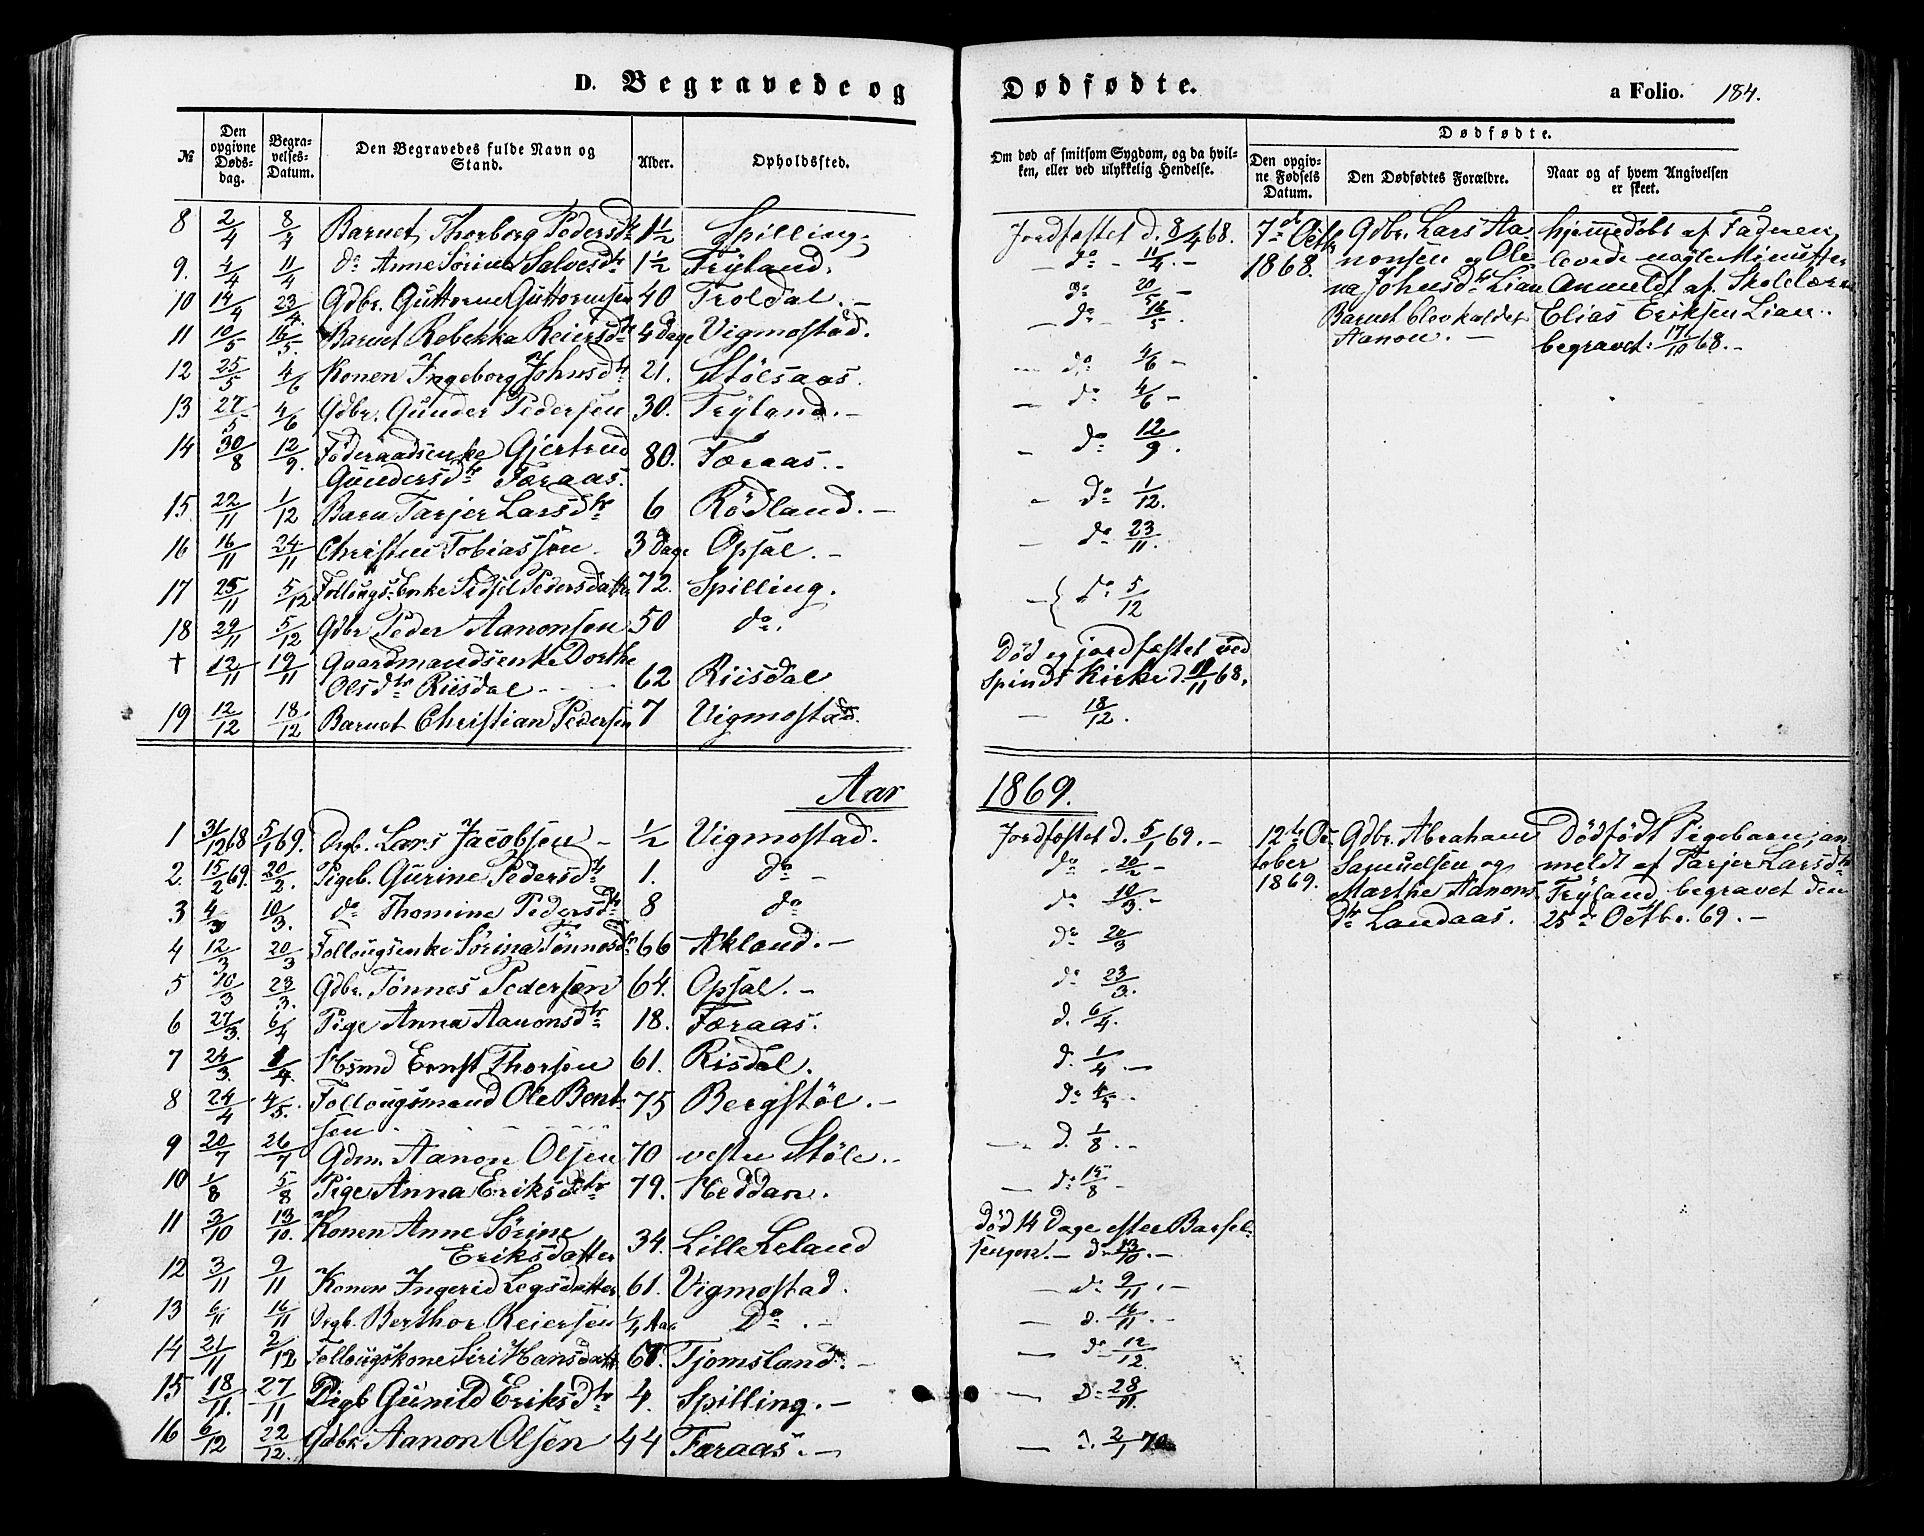 D. Begravede og Dødfødte. a Folio. 184.
№ Den opgivne Døds-dag. Begra-velses-Datum. Den Begravedes fulde Navn og Stand. Alder. Opholdssted. Om død af smitsom Sygdom, og da hvil-ken, eller ved ulykkelig Hendelse. Dødfødte. Den opgiv-ne Fødsels Datum. Den Dødfødtes Forældre. Naar og af hvem Angivelsen er skeet.
8 2/4 8/4 Barnet Thorborg Pedersdtr 1 1/2 Spilling. Jordfæstet d. 8/4 68. 7de Octb. Gdbr. Lars Aa- hjemmedøbt af Faderen,
9. 4/4 11/4 do Anne Sørine Salvesdtr 1 1/2 Trÿland. — do - 11/4 - 1868. nonsen og Ole- levede nogle Minutter.
10 14/4 23/4 Gdbr. Guttorm Guttormsen 40 Troldal. — do 20/5 — na Johnsdtr Lian Anmeldt af Skolelærer
11 10/5 16/5 Barnet Rebekka Reiersdtr 4 Dage Vigmostad. — do - 16/5. Barnet blev kaldet Elias Eriksen Lian.
Aanon. — begravet: 17/10 68. —
12 25/5 4/6 Konen Ingeborg Johnsdtr 21. Stølsaas. — do 4/6 —
13 27/5 4/6 Gdbr. Gunder Pedersen 30. Trÿland. — do 4/6 —
14 30/8 12/9. Føderaadsenke Gjertrud 80. Færaas. — do 12/9.
Gundersdtr Færaas.
15. 22/11 1/12 Barn Tarjer Larsdtr 6 Rödland. — do 1/12.
16 16/11 24/11 Christen Tobiassen. 3 Dage Opsal. — do 23/11.
17 25/11 5/12 Follougs-Enke Sidsel Pedersdatter 72. Spilling. — do 5/12
18 29/11 5/12 Gdbr Peder Aanonsen 50 do.
† 12/11 19/11 Gaardmandsenke Dorthe Død og jordfæstet ved
Olsdtr Riisdal 62 Riisdal Spinds Kirke d. 19/11 68.
19 12/12 18/12 Barnet Christian Pedersen 7 Vigmostad. — 18/12.
Aar 1869.
1 31/12 68 5/1 69. Drgb. Lars Jacobsen — 1/2 Vigmostad. Jordfæstet d. 5/1 69. — 12te Oc- Gdbr. Abraham Dödfödt Pigebarn, an-
2. 15/2 69. 20/2. Pigeb. Gurine Pedersdtr 1. do — do - 20/2 - tober Samuelsen og meldt af Tarjer Larsdtr
3 4/3 10/3. do Thomine Pedersdtr 8 do do 10/3. — 1869. Marthe Aanons- Trÿland, begravet den
4 12/3 20/3 Follougsenke Sørina Tønnesdtr 66 Akland. — do 20/3 dtr Landaas. 25de Octbr. 69. —
5 10/3 23/3. Gdbr. Tönnes Pedersen 64. Opsal. — do 23/3.
6 27/3. 6/4 Pige Anna Aanonsdtr 18. Færaas. d. 6/4.
7 24/3. 1/4. Hsmd Ernst Thorsen 61. Risdal. d. 1/4. —
8 24/4 4/5. Follougsmand Ole Bent- 75 Bergstöl. — do 4/5 -
sen
9 20/7 26/7 Gdm. Aanon Olsen 70 vestre Støle. — — d. 1/8. —
10 1/8 5/8 Pige Anna Eriksdtr 79. Heddan. — do 15/8 —
11 3/10 13/10. Konen Anne Sörine Död 14 Dage efter Barsel-
Eriksdatter 34. Lille Leland sengen. — do 13/10. —
12 3/11 9/11 Konen Ingerid Legsdatter 61. Vigmostad. — do 9/11. —
13 6/11 16/11 Drgb. Berthor Reiersen 1/4 Aar Do — — d. 16/11. —
14 21/11 2/12 Follougskone Siri Hansdatter 61. Tjomsland. — — do 12/12.
15 18/11. 27/11 Pigb Gunild Eriksdtr 4. Spilling. — — D. 28/11.
16 6/12 22/12. Gdbr Aanon Olsen 44 Færaas. — — d. 2/1 70.